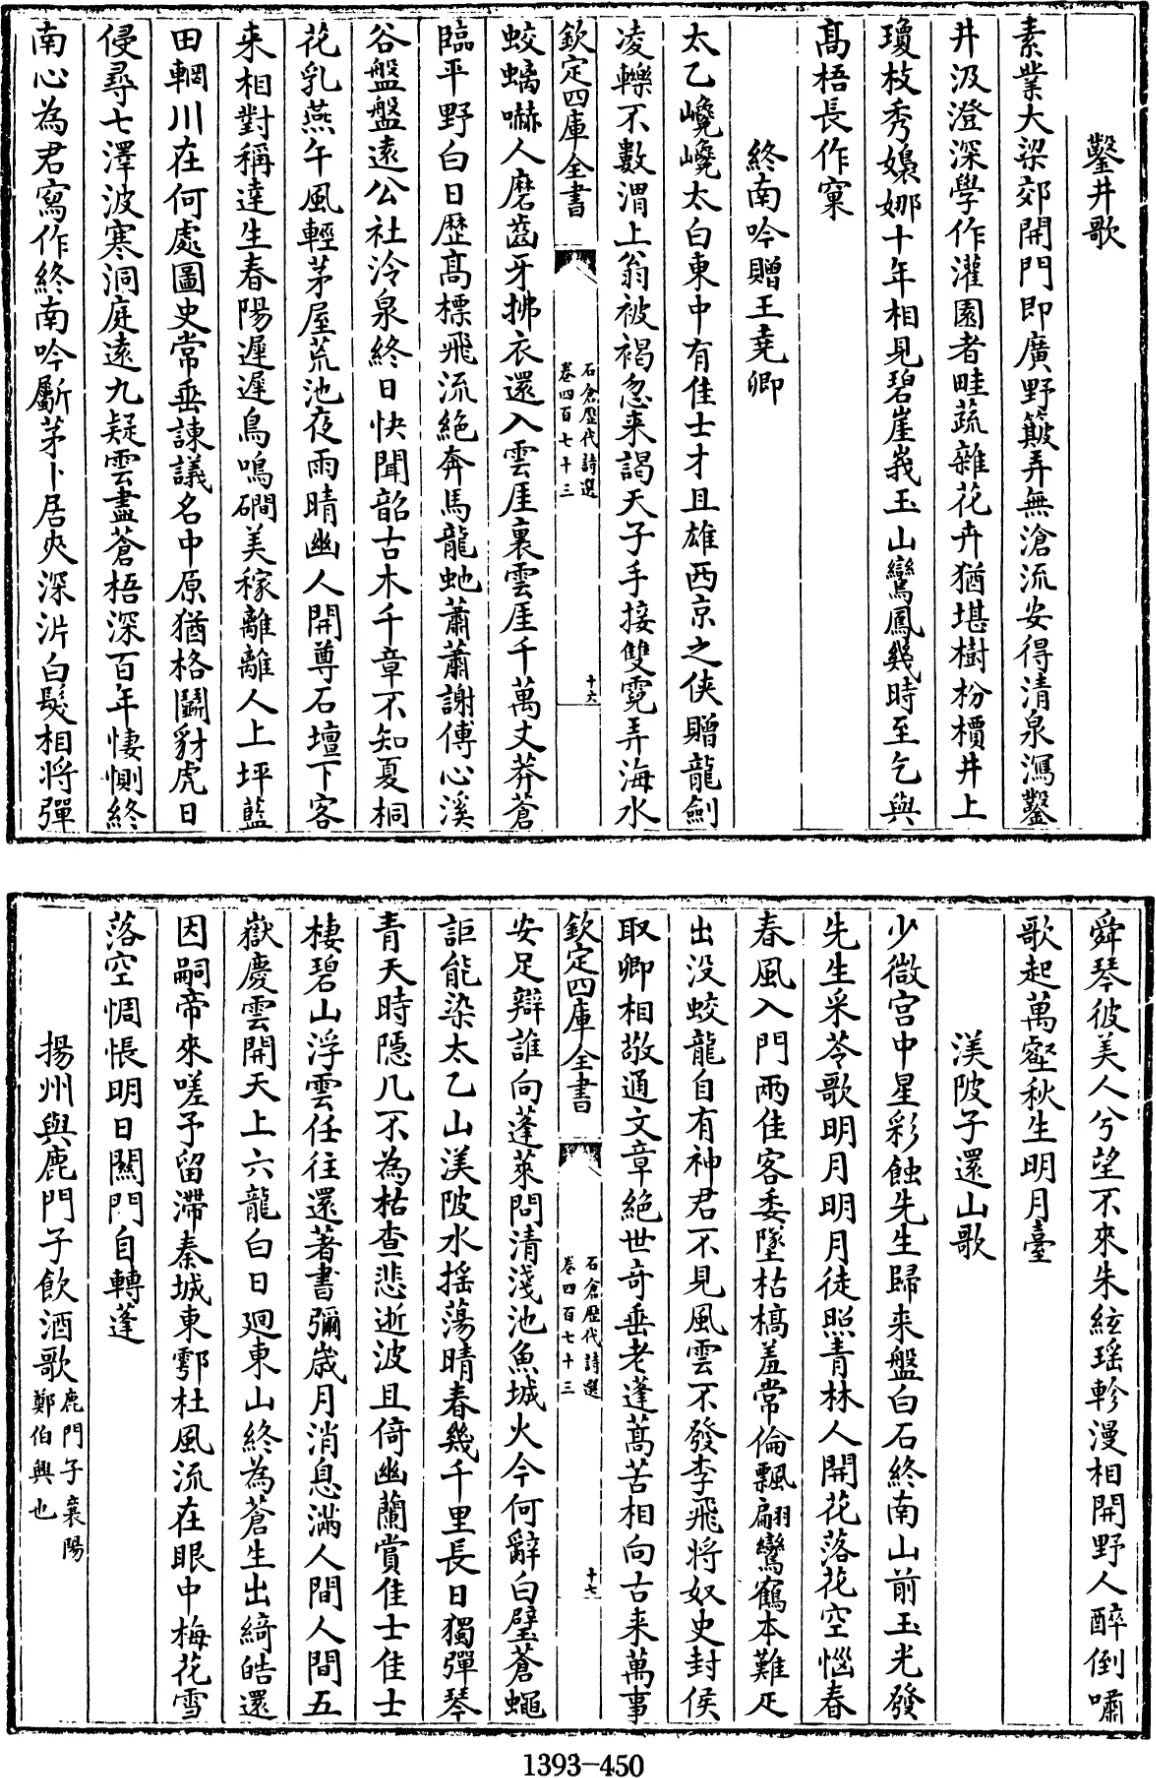 鑿井歌
素業大梁郊開門即廣野簸弄無滄流安得清泉瀉鑿
井汲澄深學作灌園者畦蔬雜花卉猶堪樹枌檟井上
瓊枝秀嫋娜十年相見碧崖峩玉山鸞鳳幾時至乞與
髙梧長作窠
終南吟贈王堯卿
太乙巉巉太白東中有佳士才且雄西京之俠贈龍劍
凌轢不數渭上翁被褐忽来謁天子手接雙霓弄海水
欽定四庫全書
石倉歷代詩選
卷四百七十三
十六
蛟螭嚇人磨齒牙拂衣還入雲厓裏雲厓千萬丈莽蒼
臨平野白日歴髙標飛流絕奔馬龍虵蕭蕭謝傳心溪
谷盤盤遠公社泠泉終日快聞韶古木千章不知夏桐
花乳燕午風輕茅屋荒池夜雨晴幽人開尊石壇下客
来相對稱達生春陽遲遲鳥鳴磵美稼離離人上坪藍
田輞川在何處圖史常垂諫議名中原猶格鬭豺虎日
侵尋七澤波寒洞庭遠九疑雲盡蒼梧深百年悽惻終
南心為君寫作終南吟斸茅卜居夾深泝白髮相將彈
舜琴彼美人兮望不來朱絃瑶軫漫相開野人醉倒嘯
歌起萬壑秋生明月臺
渼陂子還山歌
少微宫中星彩蝕先生歸来盤白石終南山前玉光發
先生采苓歌明月明月徒照青林人開花落花空惱春
春風入門兩佳客委墜枯槁羞常倫飄翩鸞鶴本難疋
出没蛟龍自有神君不見風雲不發李飛将奴史封侯
取卿相敬通文章絕世竒垂老蓬蒿苦相向古来萬事
欽定四庫全書
石倉歷代詩選
卷四百七十三
十七
安足辯誰向蓬萊問清淺池魚城火今何辭白璧蒼蠅
詎能染太乙山渼陂水揺蕩晴春幾千里長日獨彈琴
青天時隠几不為枯查悲逝波且倚幽蘭賞佳士佳士
棲碧山浮雲任往還著書彌歲月消息滿人間人間五
嶽慶雲開天上六龍白日廻東山終為蒼生出綺皓還
因嗣帝來嗟予留滯秦城東鄠杜風流在眼中梅花雪
落空惆悵明日關門自轉蓬
揚州與鹿門子飲酒歌鹿門子襄陽
鄭伯興也
1393-450